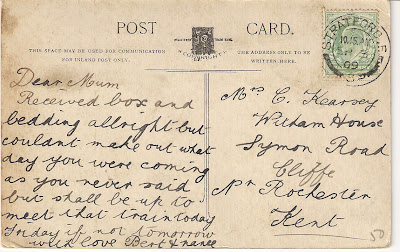 POST CARD.
THIS SPACE MAY BE USED FOR COMMUNICATION
FOR INLAND POST ONLY.
THE ADDRESS ONLY TO BE
WRITTEN HERE.
STRATFORD. E
10.15 AM
09
Dear Mum
Received box and
bedding allright but
couldnt make out what
day you were coming
as you never said
but shall be up to
meet that train today
Friday if not tomorrow
with love Bert &
Mrs C. Kearsey
Witham House
Symon Road
Cliffe
Nr Rochester
Kent
50